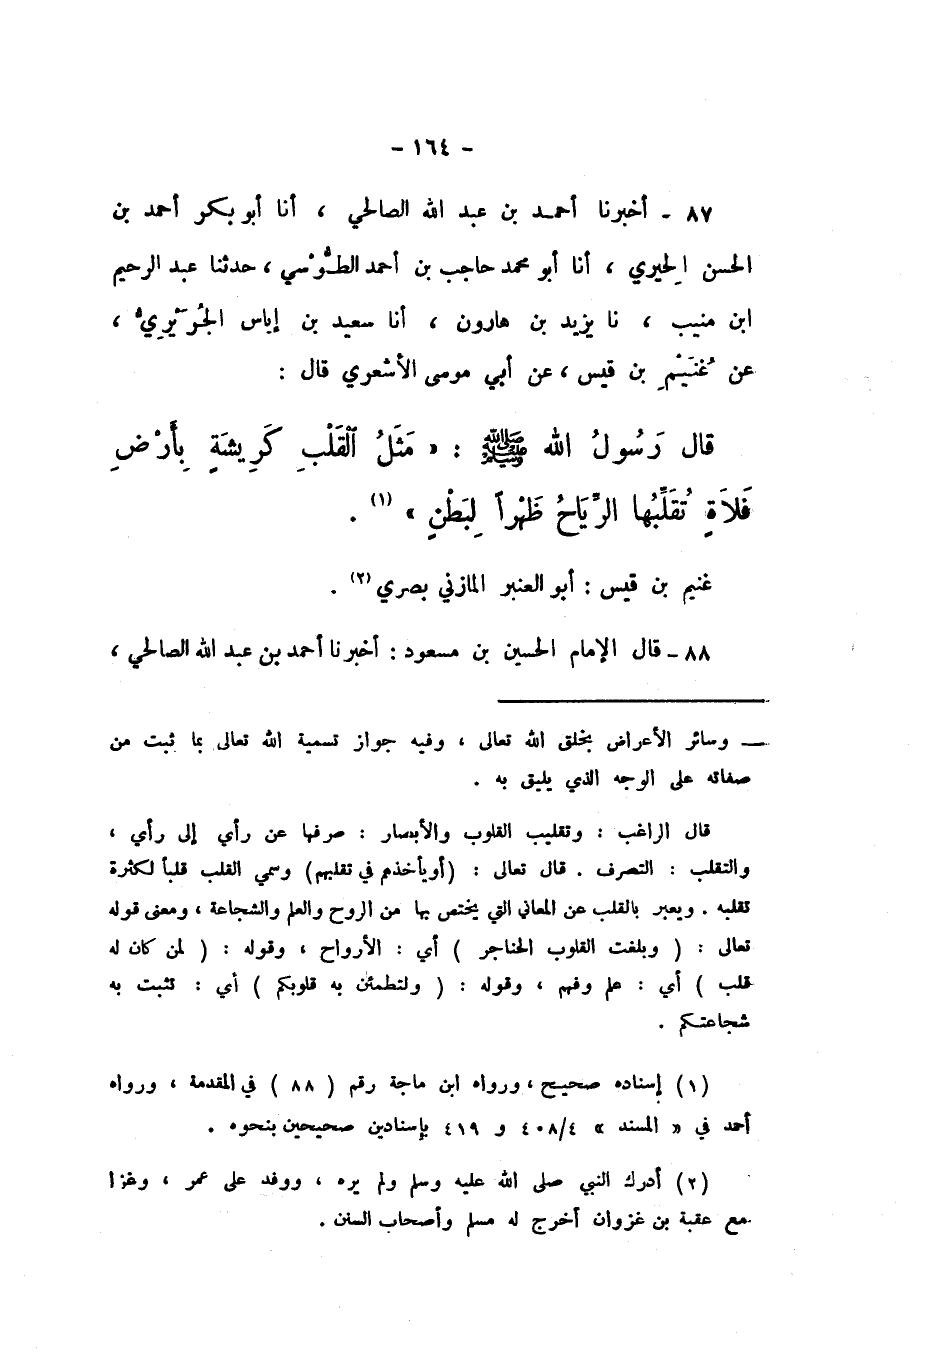 - ١٦٤ -
٨٧ - أخبرنا أحمد بن عبد الله الصالحي ، أنا أبو بكر أحمد بن
الحسن الحِيري ، أنا أبو محمد حاجب بن أحمد الطُّوْسي ، حدثنا عبد الرحيم
ابن منيب ، نا يزيد بن هارون ، أنا سعيد بن إياس الجُرَيْرِيُّ ،
عن غُنَيْمِ بن قيس ، عن أبي موسى الأشعري قال :
قال رَسُولُ الله ﷺ : « مَثَلُ القَلْبِ كَرِيشَةٍ بِأَرْضِ
فَلاَةٍ تُقَلِّبُها الرِّيَاحُ ظَهْراً لِبَطْنٍ » (١) .
غنيم بن قيس : أبو العنبر المازني بصري (٢) .
٨٨ - قال الإمام الحسين بن مسعود : أخبرنا أحمد بن عبد الله الصالحي ،
— وسائر الأعراض بخلق الله تعالى ، وفيه جواز تسمية الله تعالى بما ثبت من
صفاته على الوجه الذي يليق به .
قال الراغب : وتقليب القلوب والأبصار : صرفها عن رأي إلى رأي ،
والتقلب : التصرف . قال تعالى : (أو يأخذهم في تقلبهم) وسمي القلب قلباً لكثرة
تقلبه . ويعبر بالقلب عن المعاني التي يختص بها من الروح والعلم والشجاعة ، ومعنى قوله
تعالى : ( وبلغت القلوب الحناجر ) أي : الأرواح ، وقوله : ( لمن كان له
قلب ) أي : علم وفهم ، وقوله : ( ولتطمئن به قلوبكم ) أي : تثبت به
شجاعتكم .
(١) إسناده صحيح ، ورواه ابن ماجة رقم ( ٨٨ ) في المقدمة ، ورواه
أحمد في « المسند » ٤٠٨/٤ و ٤١٩ بإسنادين صحيحين بنحوه .
(٢) أدرك النبي صلى الله عليه وسلم ولم يره ، ووفد على عمر ، وغزا
مع عقبة بن غزوان أخرج له مسلم وأصحاب السنن .